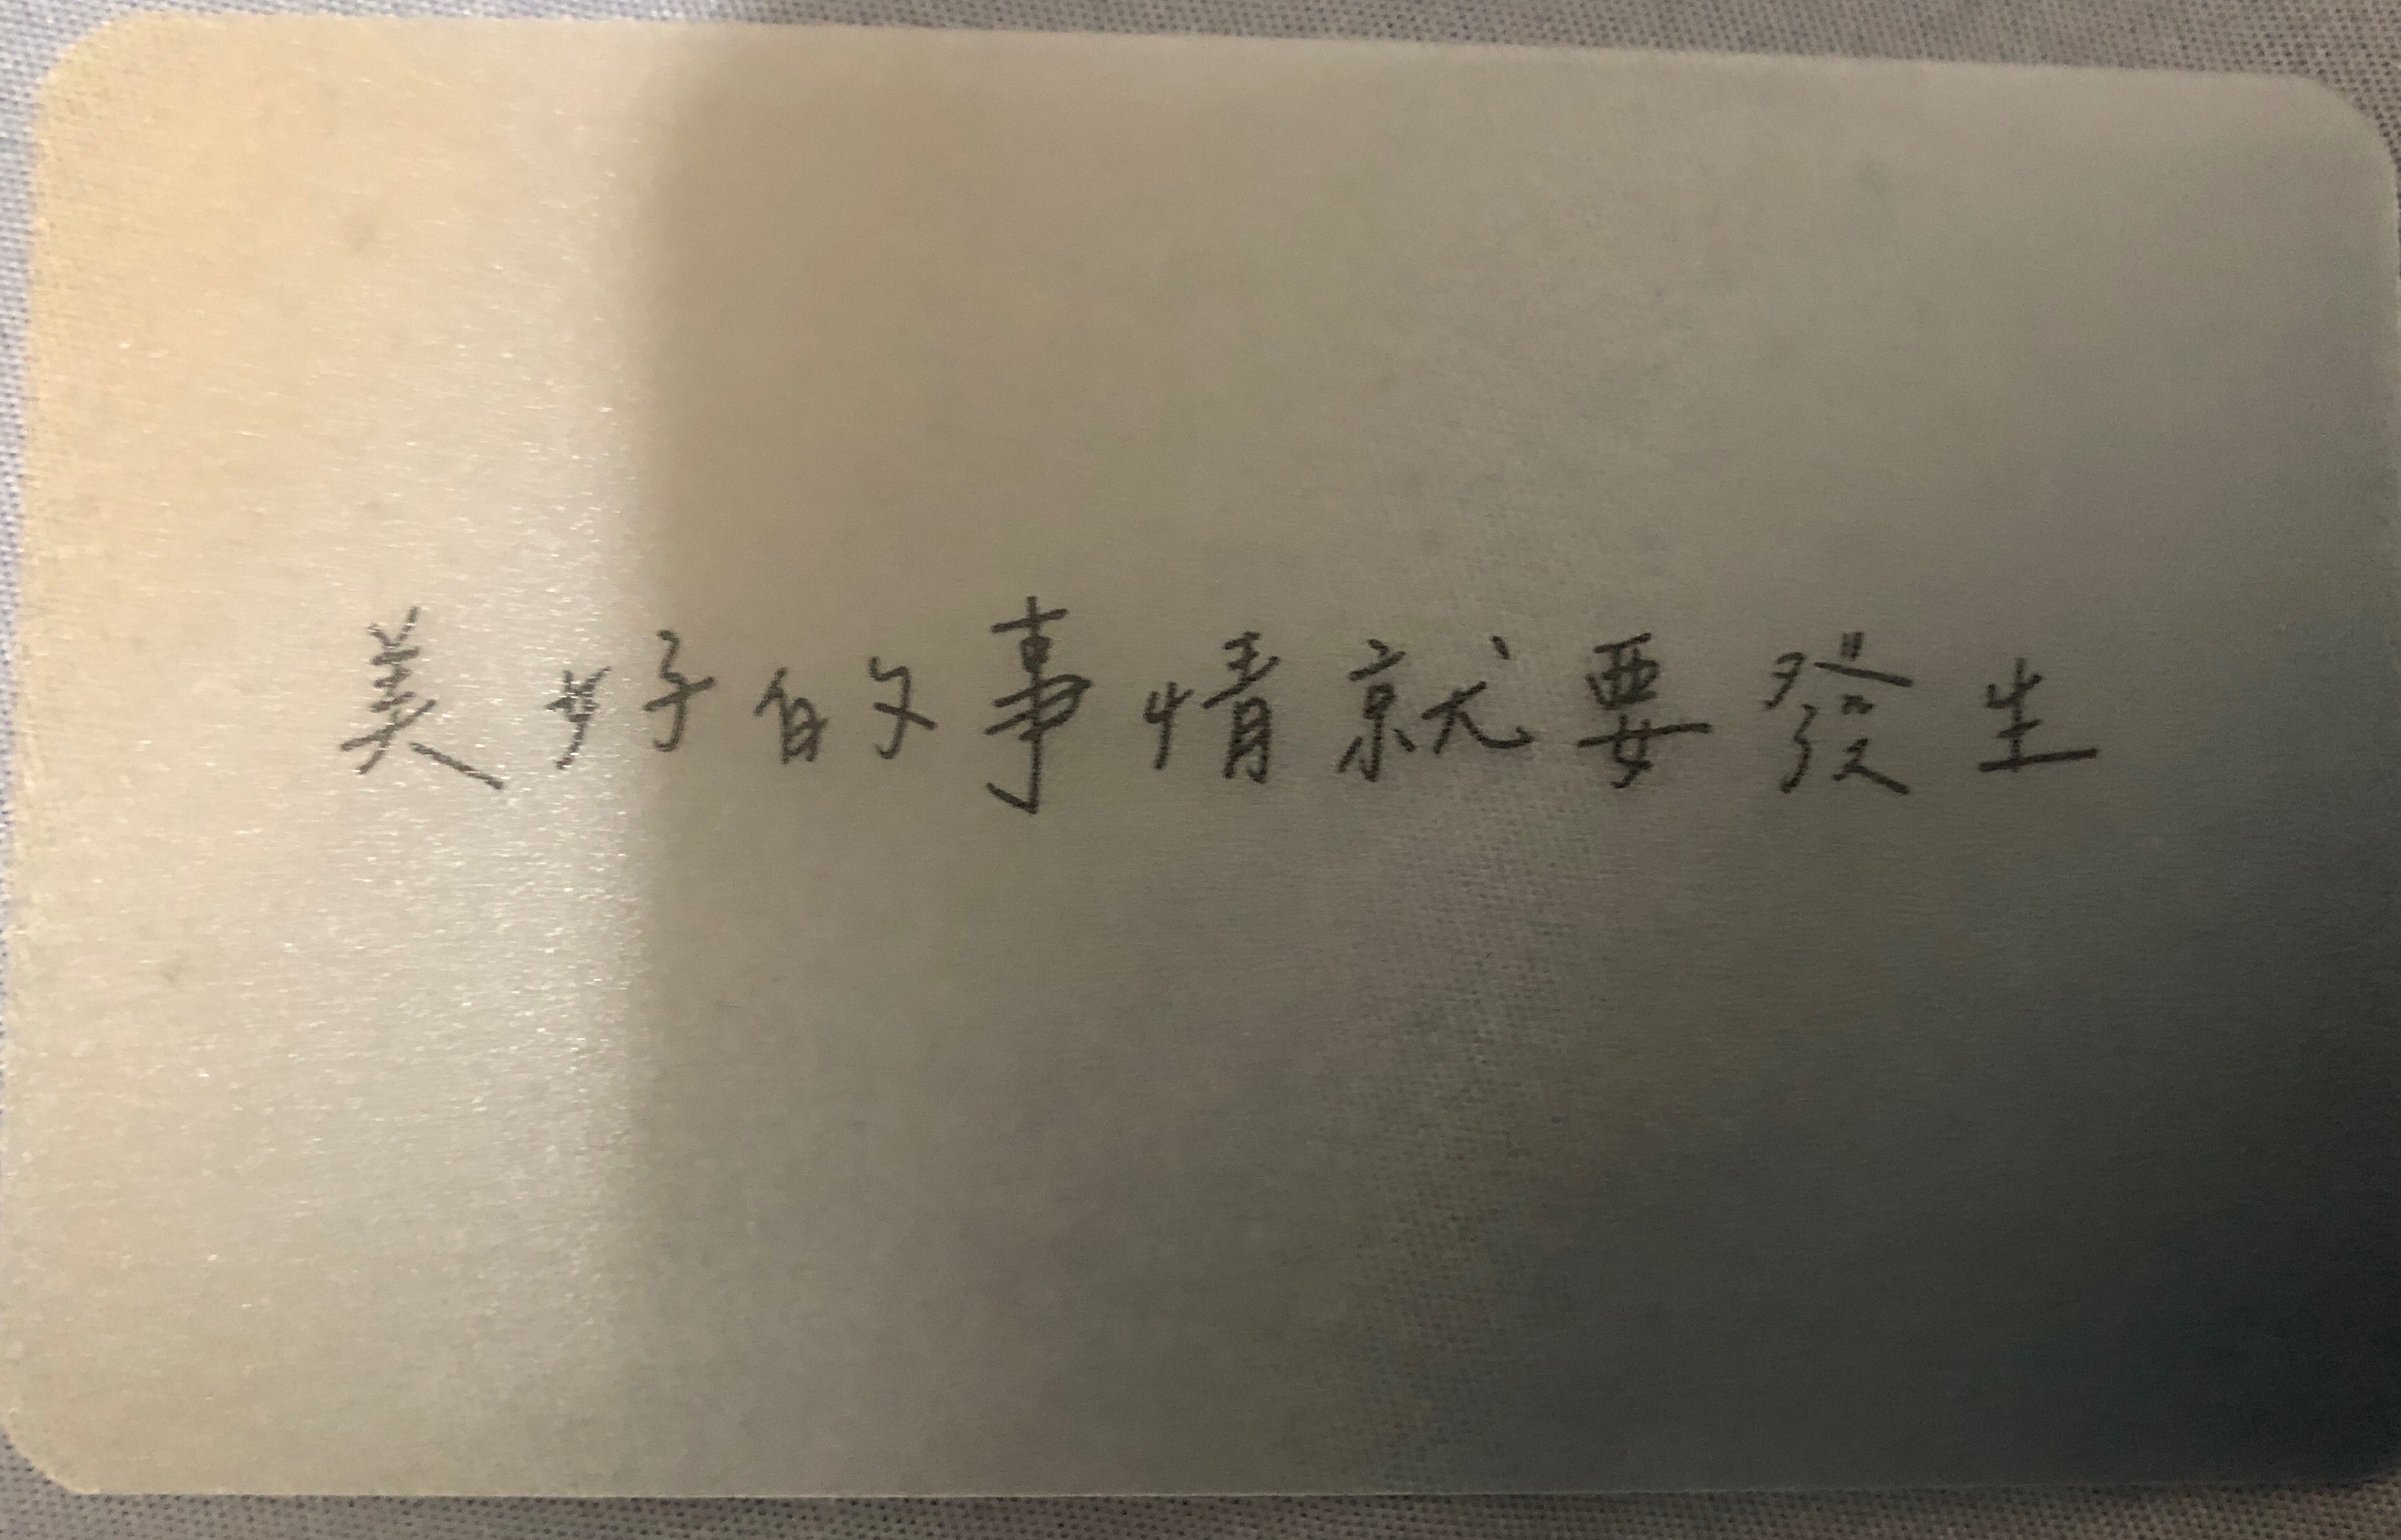 美好的事情就要發生